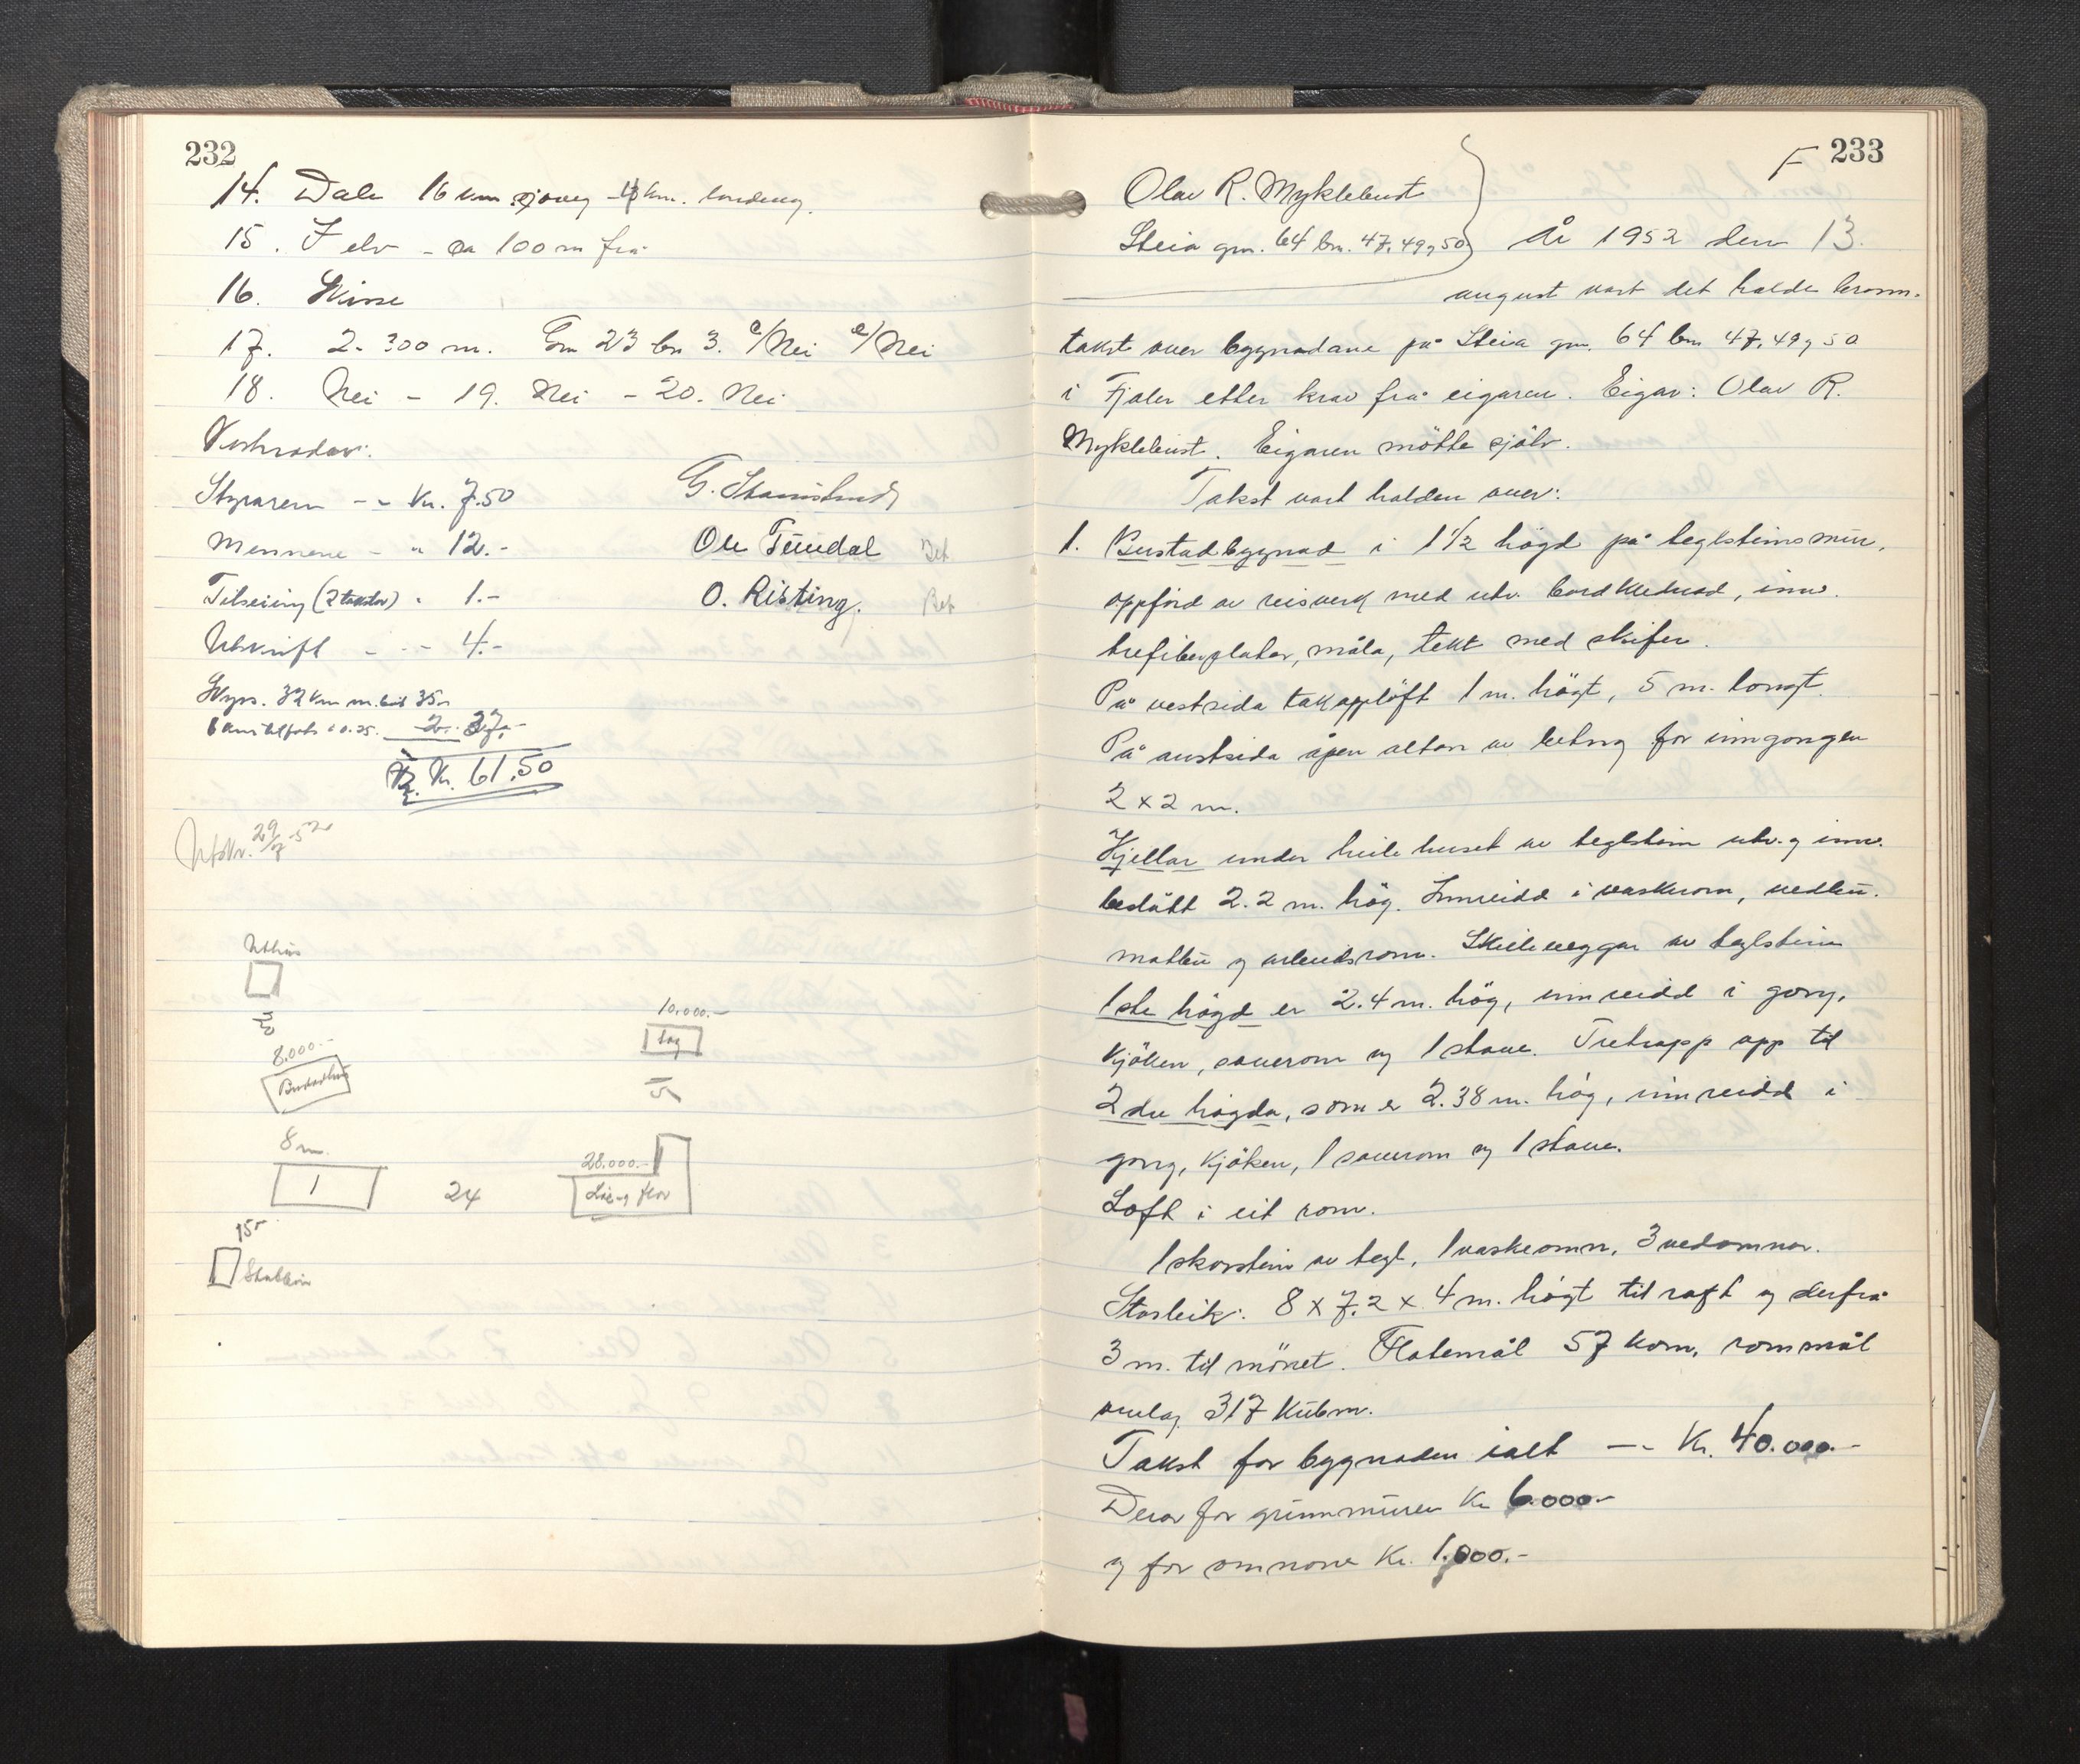 232
14. Dale 16 km sjøveg - 4 km. landveg.
15. I elv - ca 100 m frå
16. Skisse
17. 2 - 300 m. Gm 23 bn 3. c/Nei e/Nei
18. Nei - 19. Nei - 20. Nei
Kostnader:
Styraren -- Kr. 7.50
Mennene - " 12.-
Tilseiing (2 takstar) " 1.-
Utskrift - -- 4.-
Skyss. 32 km m. bil 35.-
à 0.25. 2. 37.-
Kr. 61.50
G. Stamstund
Ole Tundal Bet
O. Risting. Bet
Utskr. 29/7-52
Uthus
8.000.-
Bustadhus
10.000.-
Sag
8 m.
1
24
28.000.-
Lö og flor
15-
Stabbur
F 233
Olav R. Myklebust
Steia gm. 64 bn. 47, 49 og 50
År 1952 den 13.
august vart det halde brann-
takst over bygnadane på Steia gm. 64 bn 47, 49 og 50
i Fjaler etter krav frå eigaren. Eigar: Olav R.
Myklebust. Eigaren mötte sjölv.
Takst vart halden over:
1. Bustadbygnad i 1 1/2 högd på teglsteinsmur,
oppförd av reisverk med utv. bordklednad, innv.
trefiberplater, måla, tekt med skifer.
På vestsida takopplöft 1 m. högt, 5 m. langt.
På austsida åpen altan av betong for inngongen
2 x 2 m.
Kjellar under heile huset av teglstein utv. og innv.
beslått 2.2 m. hög. Innreidd i vaskerom, vedbu.
matbu og arbeidsrom. Skilleveggar av teglstein
1ste högd er 2.4 m. hög, innreidd i gong,
kjöken, soverom og 1 stove. Tretrapp opp til
2dre högda, som er 2.38 m. hög, innreidd i
gong, kjöken, 1 soverom og 1 stove.
Loft i eit rom.
1 skorstein av tegl, 1 vaskeomn, 3 vedomnar.
Storleik: 8 x 7.2 x 4 m. högt til raft og derfrå
3 m. til mönet. Flatemål 57 kvm, rommål
omlag 317 kubm.
Takst for bygnaden ialt -- Kr. 40.000.-
Derav for grunnmuren Kr 6.000.-
og for omnane Kr. 1.000.-